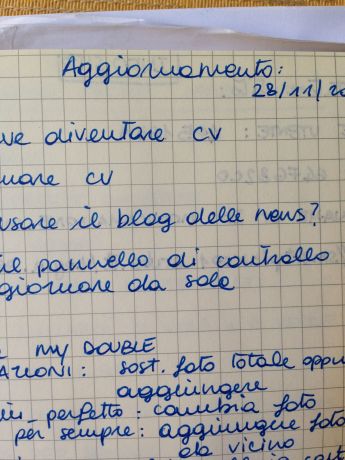 Aggiornamento:
28/11/20
ve diventare CV
nare CV
usare il blog delle news?
il pannello di controllo
giornare da sole
MY DOUBLE
AZIONI: sost. foto totale oppu
aggiungere
perfetto: cambia foto
per sempre: aggiungere foto
da vicino